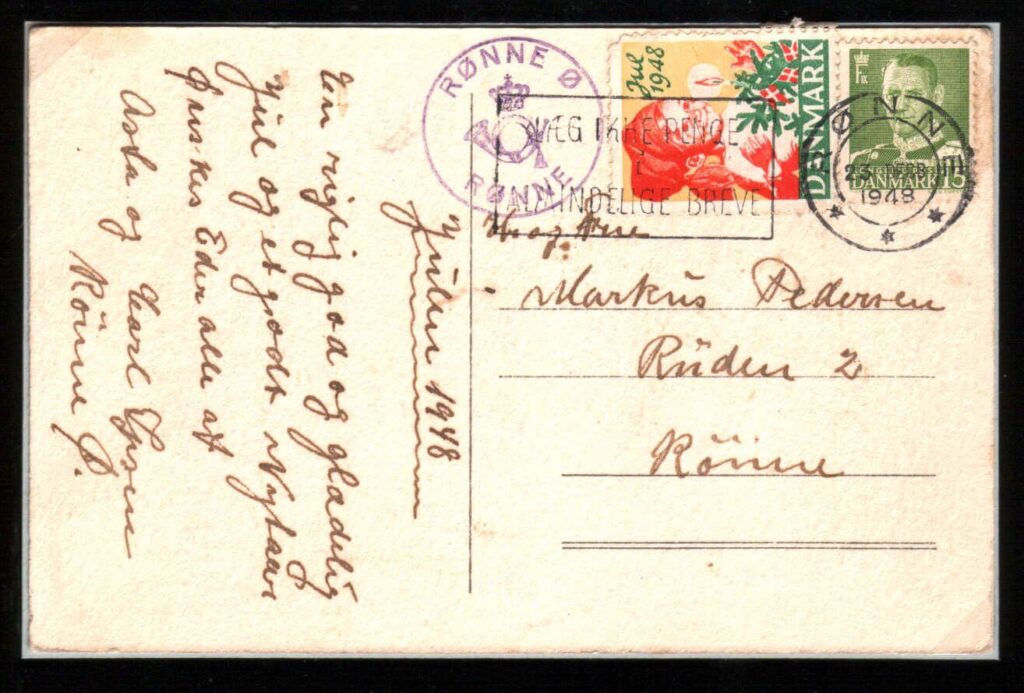 RØNNE Ø
RØNNE
Jul
1948
DANMARK
DANMARK 15
LÆG IKKE PENGE
I
ALMINDELIGE BREVE
RØNNE
23. DEC.
1948
Julen 1948
En rigtig god og glædelig
Jul og et godt Nytaar
ønskes Eder alle af
Asta og Carl
Rönne Ø.
Markus Pedersen
Rönne